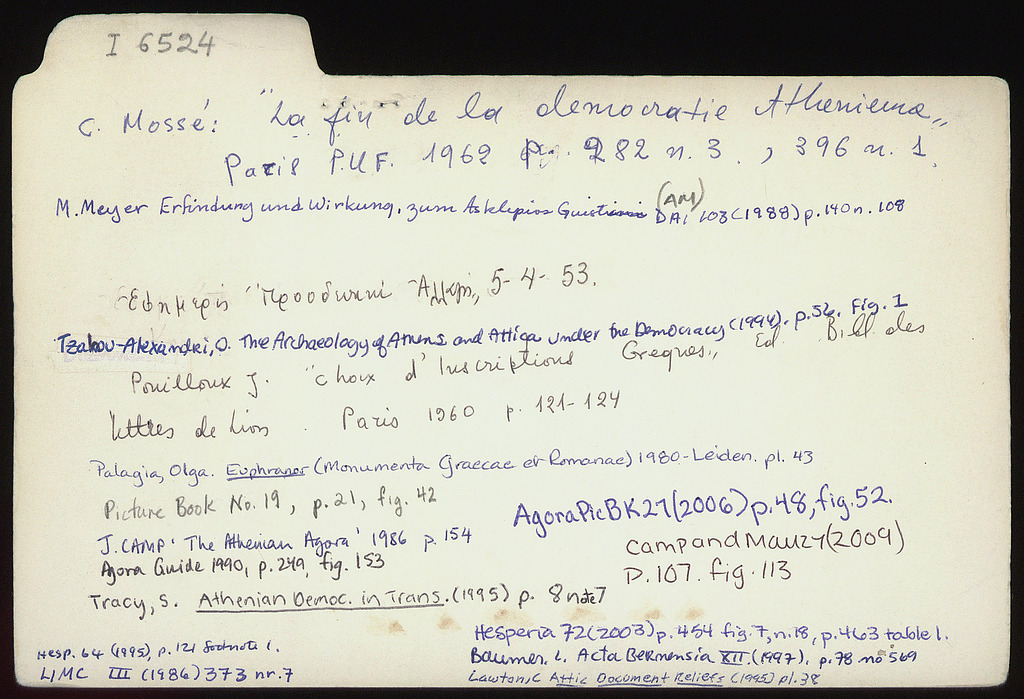 I 6524
C. Mossé: "La fin de la democratie Athenienne"
Paris P.U.F. 1962 p. 282 n. 3 , 396 n. 1.
M. Meyer Erfindung und Wirkung. zum Asklepios (AM) DAI 103 (1988) p. 140 n. 108
Εφημερις 5-4-53.
Tzahou-Alexandri, O. The Archaeology of Athens and Attica under the Democracy (1994). p. 56. Fig. 1
Pouilloux J. "choix d' Inscriptions Greques" Ed Bibl. des
lettres de Lion . Paris 1960 p. 121-124
Palagia, Olga. Euphranor (Monumenta Graecae et Romanae) 1980 - Leiden. pl. 43
Picture Book No. 19, p. 21, fig. 42
AgoraPicBK27 (2006) p. 48, fig. 52.
J. CAMP 'The Athenian Agora' 1986 p. 154
Camp and Mauzy (2009)
Agora Guide 1990, p. 249, fig. 153
P. 107. fig. 113
Tracy, S. Athenian Democ. in Trans. (1995) p. 8 note 7
Hesperia 72 (2003) p. 454 fig. 7, n. 18, p. 463 table 1.
Hesp. 64 (1995), p. 121 footnote 1.
Baumer. L. Acta Bernensia XII. (1997). p. 78 no 569
LIMC III (1986) 373 nr. 7
Lawton, C Attic Document Reliefs (1995) pl. 38